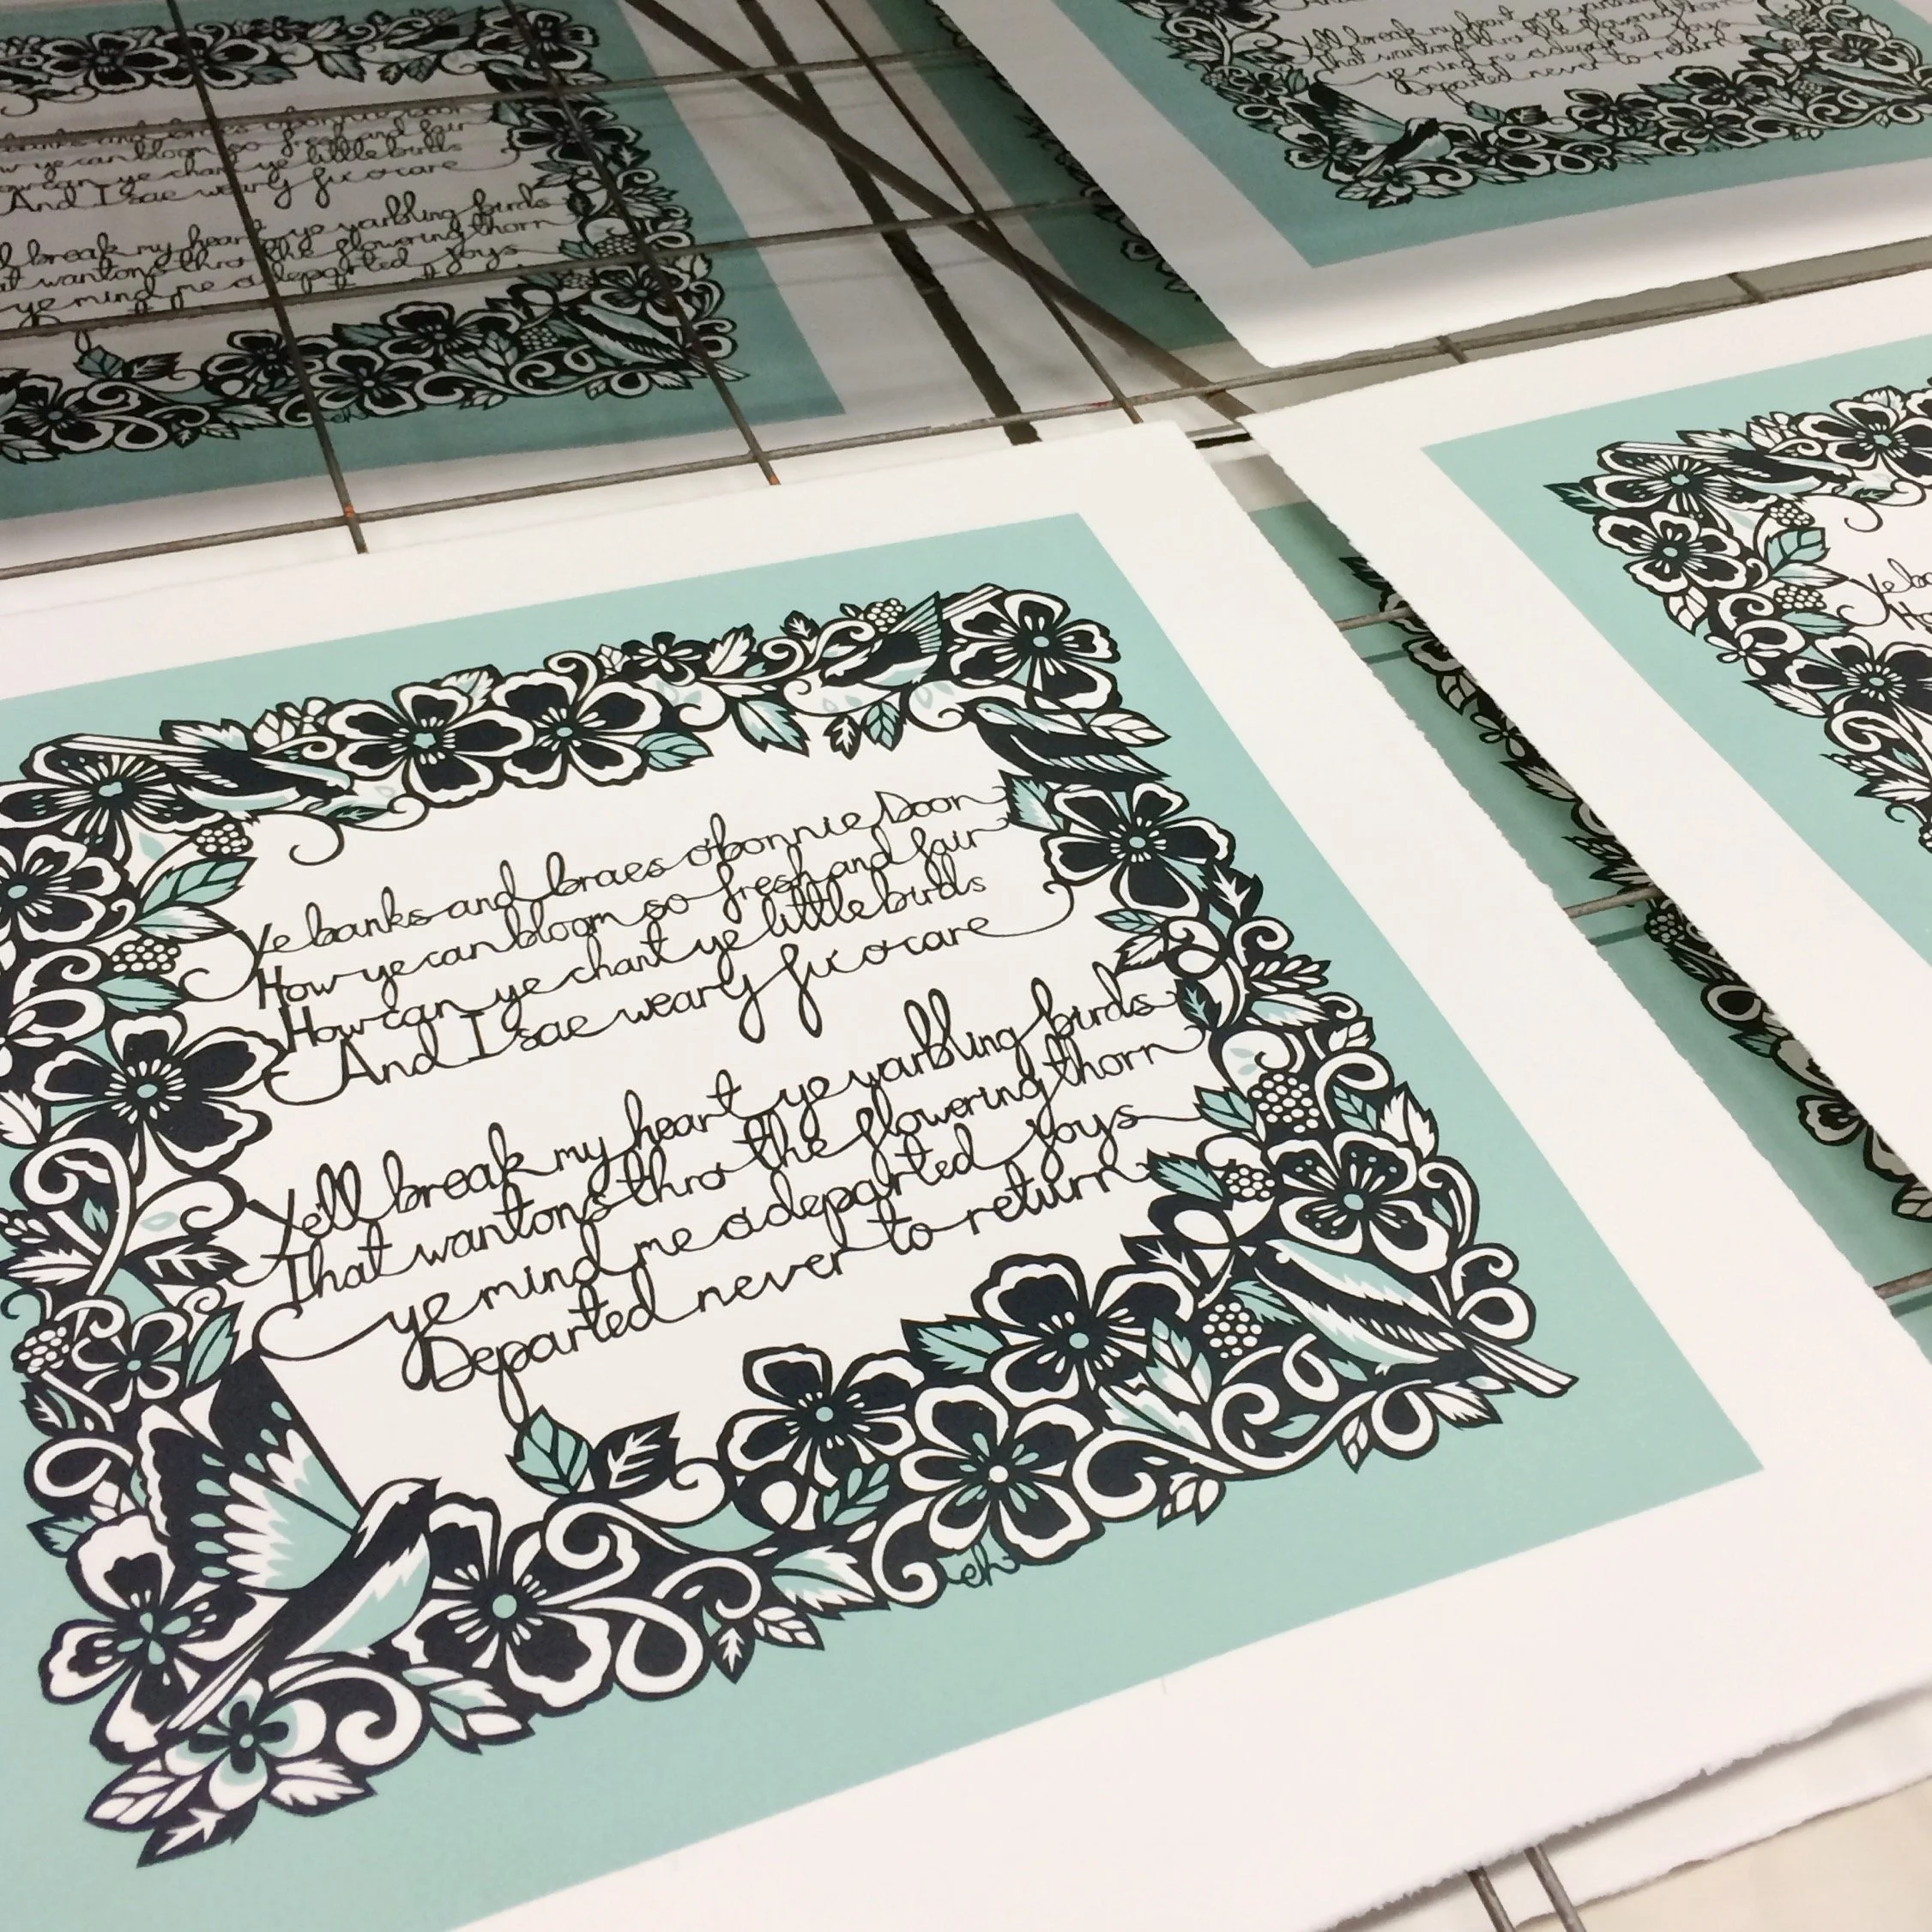 banks and braes o bonnie Doon
w ye can bloom so fresh and fair
ow can ye chant ye little birds
And I sae weary fu o care
l break my heart ye warbling birds
at wantons thro the flowering thorn
ye mind me o departed Joys
Yell break my heart ye warbling birds
That wantons thro the flowering thorn
ye mind me o departed Joys
Departed never to return
Ye banks and braes o' bonnie Doon
How ye can bloom so fresh and fair
How can ye chant ye little birds
And I sae weary fu o care
Ye'll break my heart ye warbling birds
That wantons thro the flowering thorn
ye mind me o departed Joys
Departed never to return
eh
Ye ba
Ho